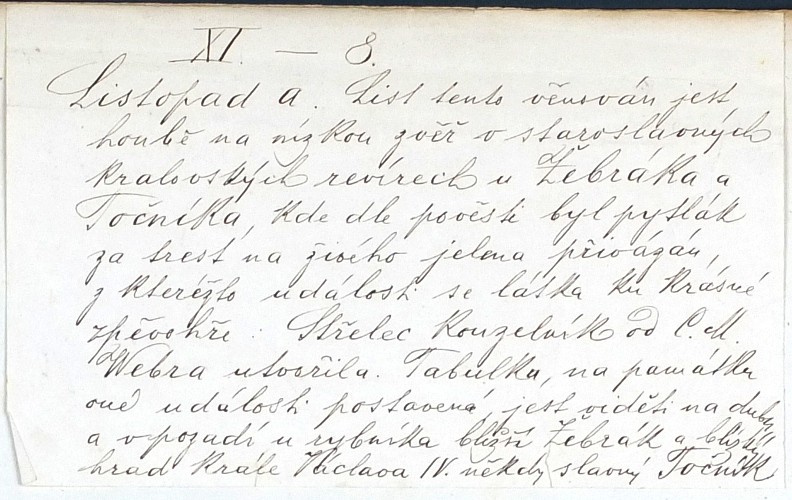 XI. — 8.
Listopad a. List tento věnován jest
honbě na nízkou zvěř v staroslavných
královských revírech u Žebráka a
Točníka, kde dle pověsti byl pytlák
za trest na živého jelena přivázán,
z kteréžto události se látka ku krásné
zpěvohře: Střelec kouzelník od C. M.
Webra utvořila. Tabulka, na památku
oné události postavená, jest viděti na dubu
a v pozadí u rybníka bližší Žebrák a blízký
hrad krále Václava IV. někdy slavný Točník